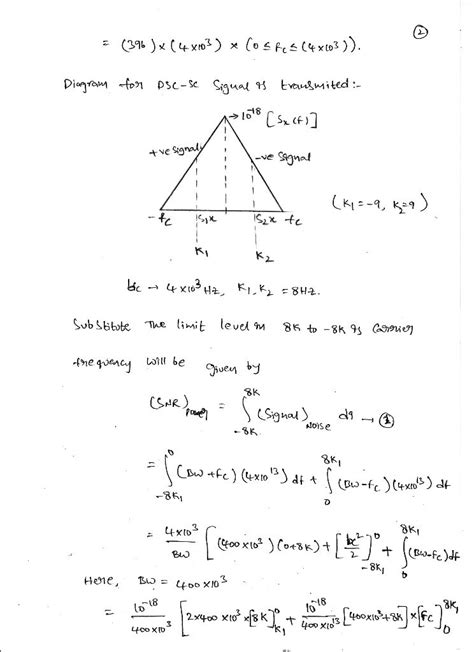 ②
= (396) × (4×10³) × (0 ≤ fc ≤ (4×10³)).
Diagram for DSC-SC Signal is transmited:-
→10⁻¹⁸ [Sx(f)]
+ve signal
-ve Signal
(K₁=-9, K₂=9)
-fc S₁x S₂x fc
K₁ K₂
fc → 4×10³ Hz, K₁, K₂ = 8Hz.
Substitute The limit level in 8K to -8K is Carrier
frequency will be given by
(SNR)power = ∫₋₈ₖ⁸ᴷ (Signal)Noise → ①
= ∫₋₈ₖ₁⁰ (BW+fc)(4×10¹³) df + ∫₀⁸ᴷ¹ (BW-fc)(4×10¹³) df
= 4×10³/BW [(400×10³)(0+8K) + [c²/2]₋₈ₖ₁⁰ + ∫₀⁸ᴷ¹ (BW-fc) df
Here, BW = 400×10³
= 10⁻¹⁸/400×10³ [2×400×10³×[8K]ₖ₁⁰ + 10⁻¹⁸/400×10¹³ [400×10³+8K]×[fc]₀⁸ᴷ¹